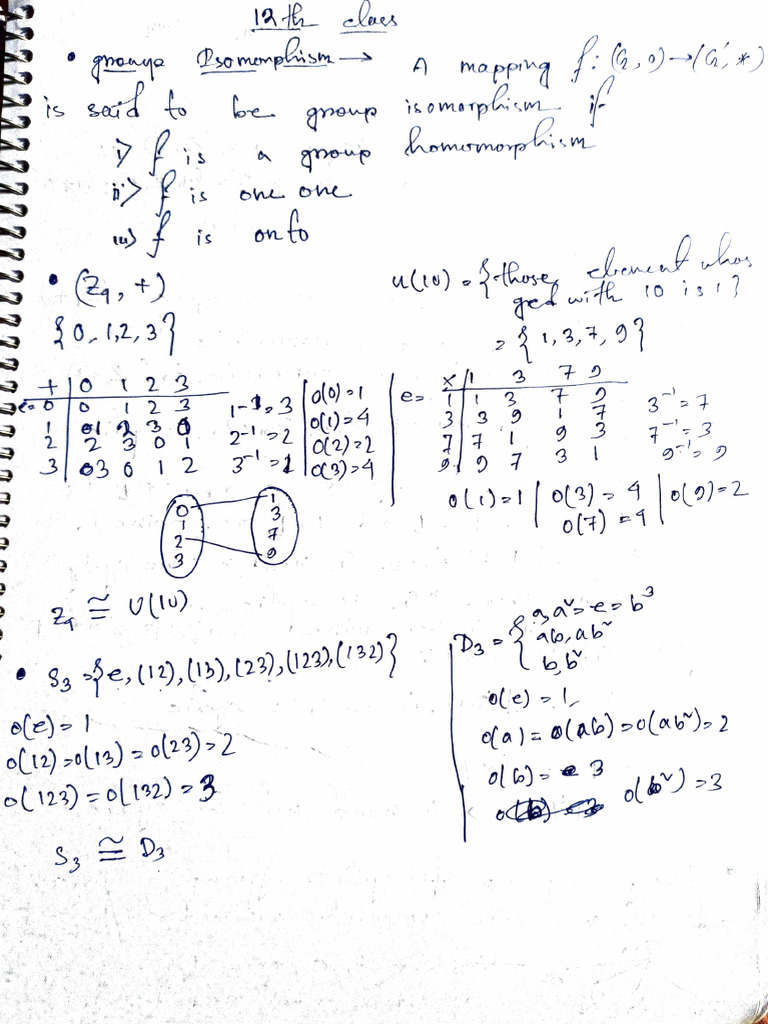 12th class
• group Isomorphism → A mapping f: (G, o) → (G', *)
is said to be group isomorphism if
i) f is a group homomorphism
ii) f is one one
iii) f is onto
• (Z4, +)
{0, 1, 2, 3}
+ | 0 1 2 3
e=0 | 0 1 2 3
1 | 1 2 3 0
2 | 2 3 0 1
3 | 3 0 1 2
1⁻¹ = 3
2⁻¹ = 2
3⁻¹ = 1
o(0) = 1
o(1) = 4
o(2) = 2
o(3) = 4
U(10) = {those element whos
gcd with 10 is 1}
= {1, 3, 7, 9}
× | 1 3 7 9
e = 1 | 1 3 7 9
3 | 3 9 1 7
7 | 7 1 9 3
9 | 9 7 3 1
3⁻¹ = 7
7⁻¹ = 3
9⁻¹ = 9
o(1) = 1 | o(3) = 4 | o(9) = 2
o(7) = 4
0 1
1 3
2 7
3 9
Z4 ≅ U(10)
• S3 = {e, (12), (13), (23), (123), (132)}
o(e) = 1
o(12) = o(13) = o(23) = 2
o(123) = o(132) = 3
S3 ≅ D3
D3 = { a, a² = e = b³
ab, ab²
b, b²
o(e) = 1
o(a) = o(ab) = o(ab²) = 2
o(b) = 3
o(b²) = 3